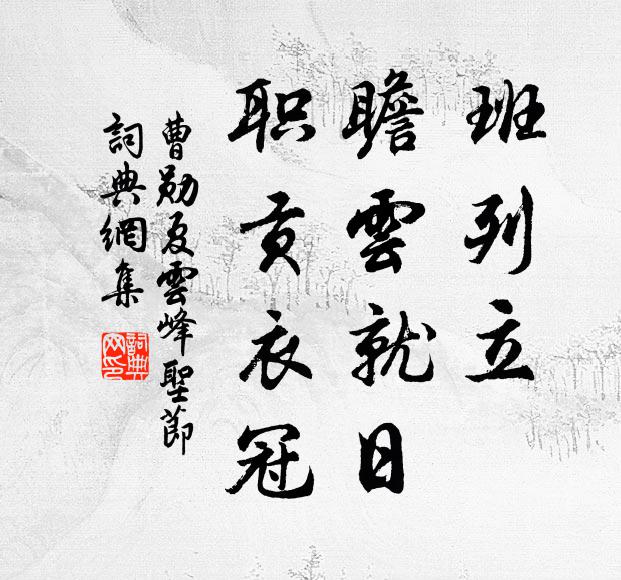 班列立
瞻雲就日
职贡衣冠
曹勋夏雲峰聖節
詞典網集
詞典
网印